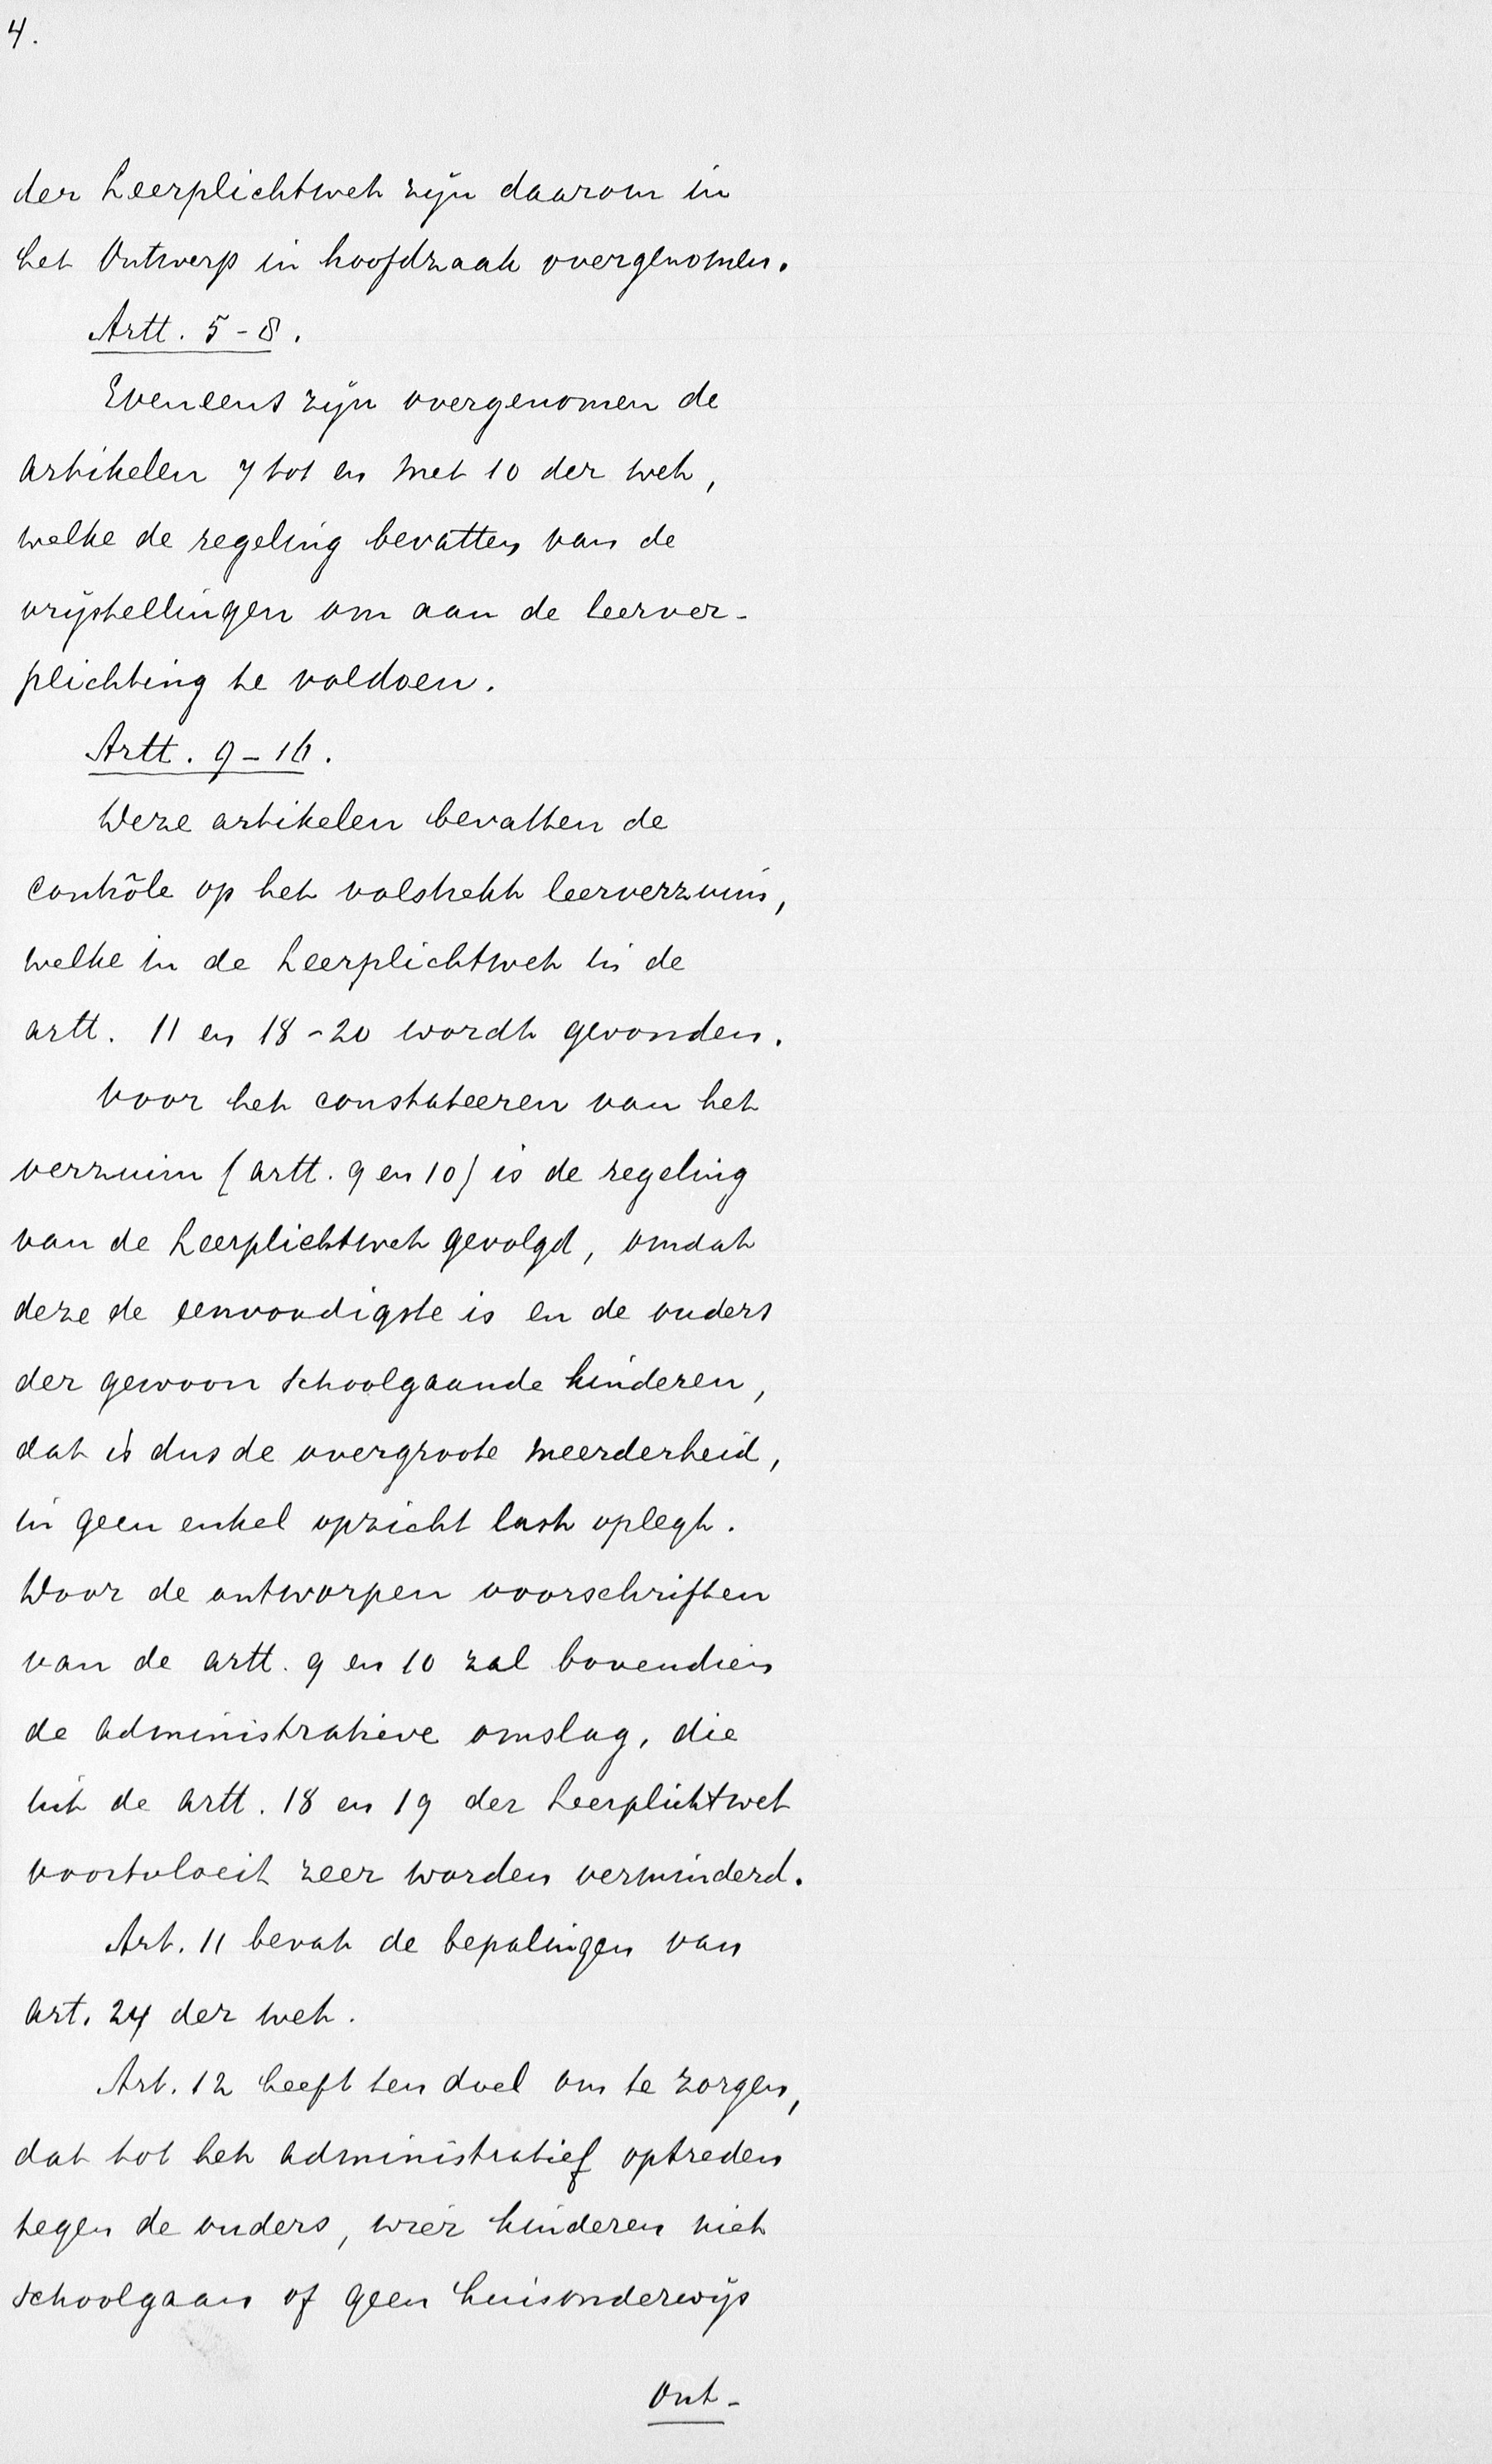 4.
der Leerplichtwet zijn daarom in
het Ontwerp in hoofdzaak overgenomen.
Artt. 5-8.
Eveneens zijn overgenomen de
artikelen 7 tot en met 10 der wet,
welke de regeling bevatten van de
vrijstellingen om aan de leerver-
plichting te voldoen.
Artt. 9-16.
Deze artikelen bevatten de
contrôle op het volstrekt leerverzuim,
welke in de Leerplichtwet in de
artt. 11 en 18-20 wordt gevonden.
Voor het constateeren van het
verzuim (artt. 9 en 10) is de regeling
van de Leerplichtwet gevolgd, omdat
deze de eenvoudigste is en de ouders
der gewoon schoolgaande kinderen,
dat is dus de overgroote meerderheid,
in geen enkel opzicht last oplegt.
Door de ontworpen voorschriften
van de artt. 9 en 10 zal bovendien
de administratieve omslag, die
uit de artt. 18 en 19 der Leerplichtwet
voortvloeit zeer worden verminderd.
Art. 11 bevat de bepalingen van
art. 24 der wet.
Art. 12 heeft ten doel om te zorgen,
dat tot het administratief optreden
tegen de ouders, wier kinderen niet
schoolgaan of geen huisonderwijs
ont-